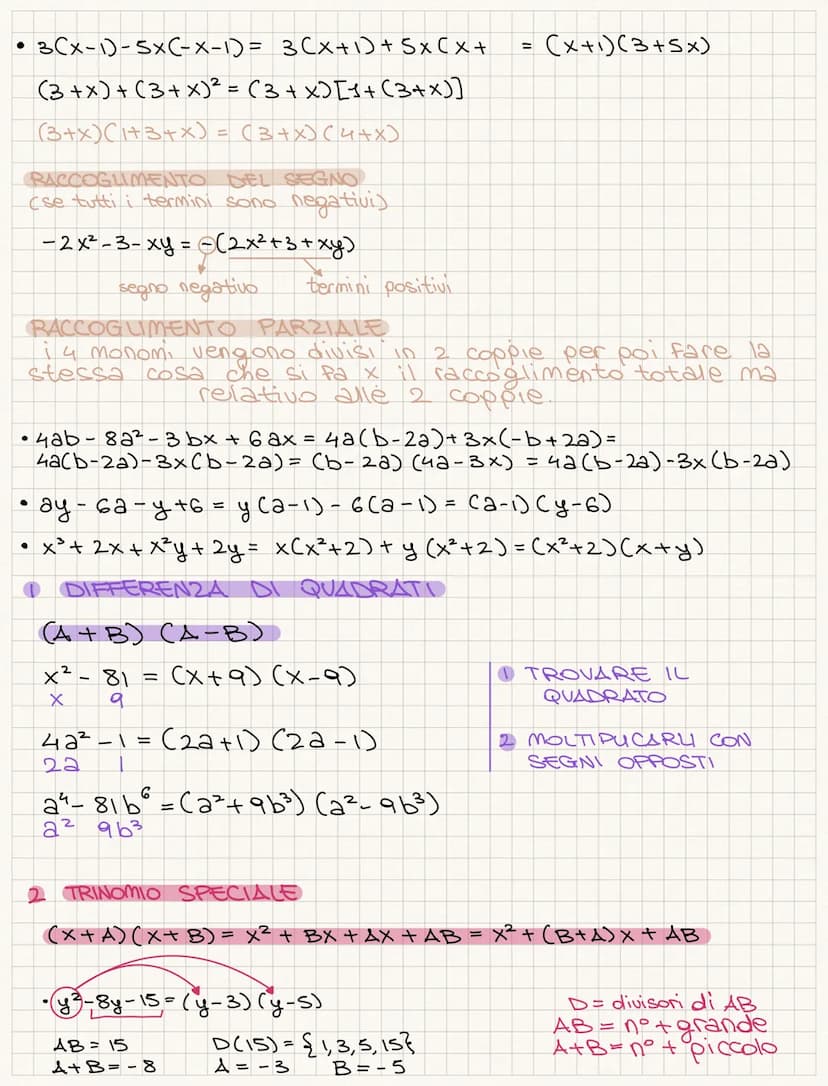 • 3(x-1)-5x(-x-1)= 3(x+1)+5x(x+ = (x+1)(3+5x)
(3+x)+(3+x)² = (3+x)[1+(3+x)]
(3+x)(1+3+x) = (3+x)(4+x)
RACCOGLIMENTO DEL SEGNO
(se tutti i termini sono negativi)
-2x²-3-xy = -(2x²+3+xy)
segno negativo termini positivi
RACCOGLIMENTO PARZIALE
i 4 monomi vengono divisi in 2 coppie per poi fare la
stessa cosa che si fa x il raccoglimento totale ma
relativo alle 2 coppie.
• 4ab - 8a² - 3bx + 6ax = 4a(b-2a)+3x(-b+2a)=
4a(b-2a)-3x(b-2a)= (b-2a)(4a-3x) = 4a(b-2a)-3x(b-2a)
• ay - 6a - y + 6 = y(a-1) - 6(a-1) = (a-1)(y-6)
• x³ + 2x + x²y + 2y = x(x²+2) + y(x²+2) = (x²+2)(x+y)
1 DIFFERENZA DI QUADRATI
(A+B) (A-B)
x² - 81 = (x+9) (x-9)
x 9
1 TROVARE IL
QUADRATO
4a² - 1 = (2a+1) (2a-1)
2a 1
2 MOLTIPLICARLI CON
SEGNI OPPOSTI
a⁴ - 81b⁶ = (a²+9b³) (a²-9b³)
a² 9b³
2 TRINOMIO SPECIALE
(x+A)(x+B) = x² + Bx + Ax + AB = x² + (B+A)x + AB
• y²-8y-15 = (y-3)(y-5)
AB = 15 D(15) = {1,3,5,15}
A+B = -8 A = -3 B = -5
D = divisori di AB
AB = n° + grande
A+B = n° + piccolo